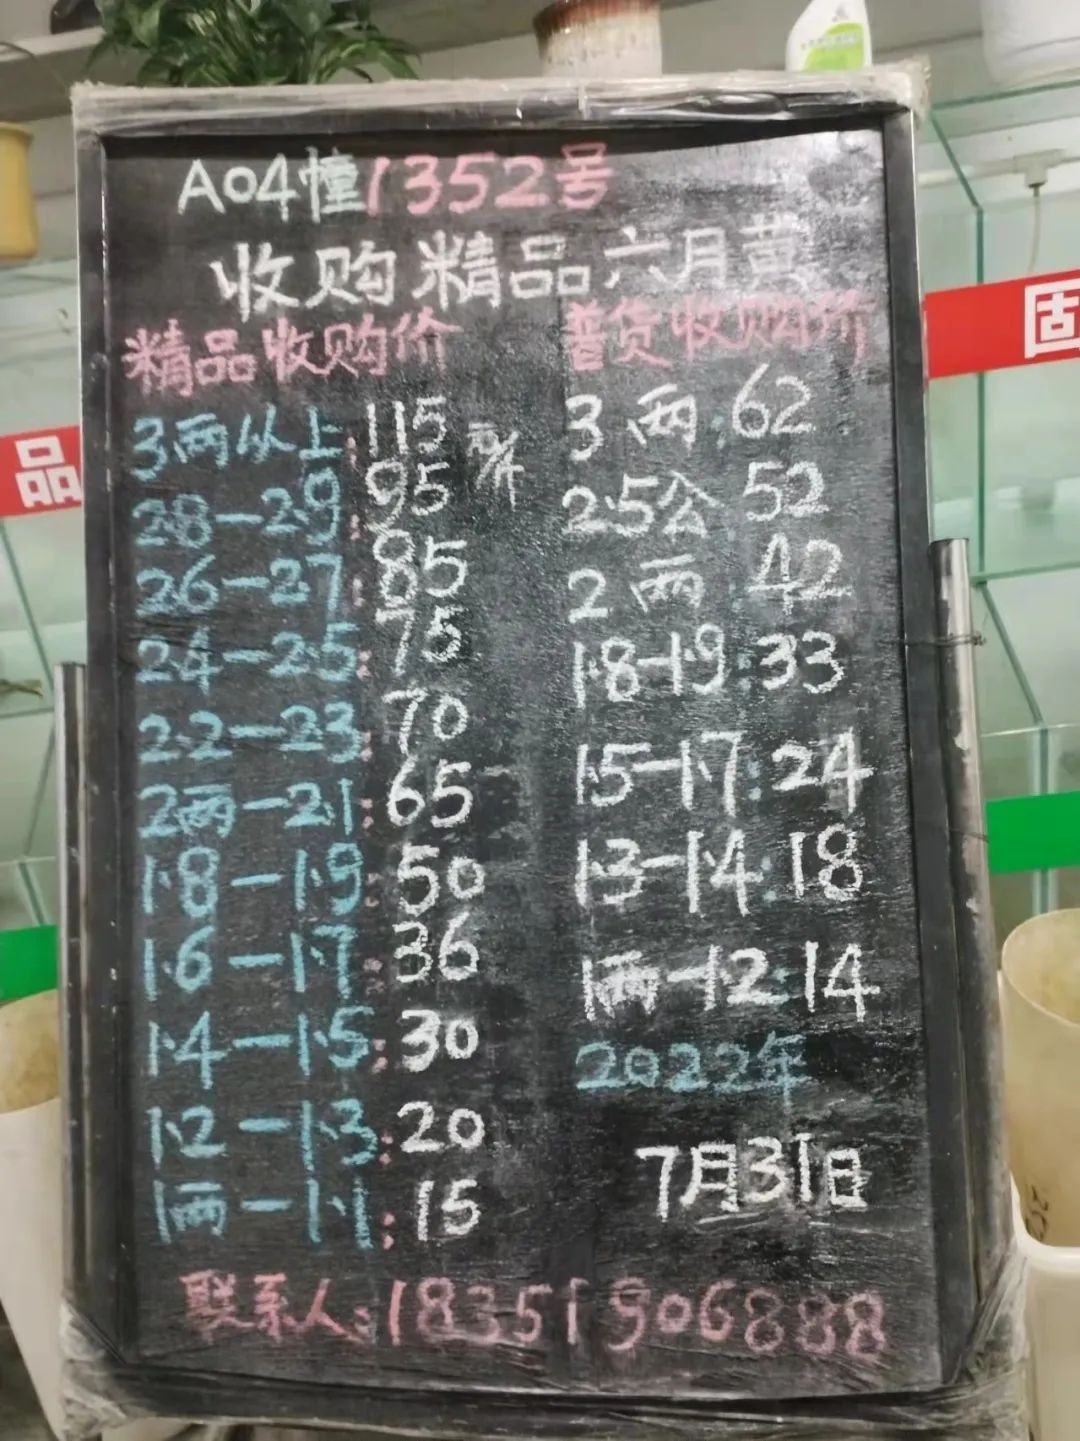 A04幢1352号
收购精品六月黄
精品收购价
3两以上:115元/斤
2.8-2.9:95
2.6-2.7:85
2.4-2.5:75
2.2-2.3:70
2两-2.1:65
1.8-1.9:50
1.6-1.7:36
1.4-1.5:30
1.2-1.3:20
1两-1.1:15
普货收购价
3两:62
2.5公 52
2两:42
1.8-1.9:33
1.5-1.7:24
1.3-1.4:18
1两-1.2:14
2022年
7月31日
联系人:18351906888
品
固